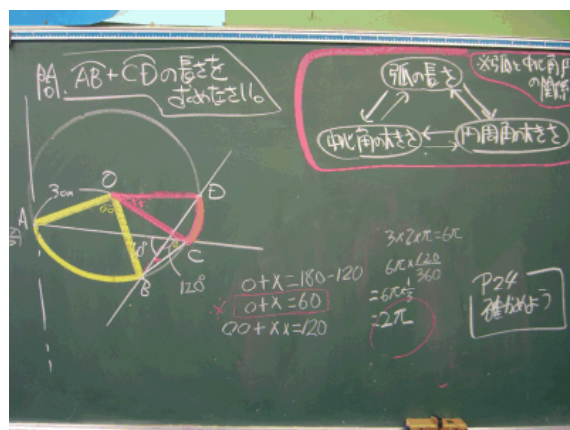 問. AB+CDの長さを
求めなさい。
※弧と中心角
の関係
弧の長さ
中心角の大きさ
円周角の大きさ
O
D
3cm
A
C
B
120°
○+×=180-120
○+×=60
○○+××=120
3×2×π=6π
6π×120/360
=6π×1/3
=2π
P24
確かめよう